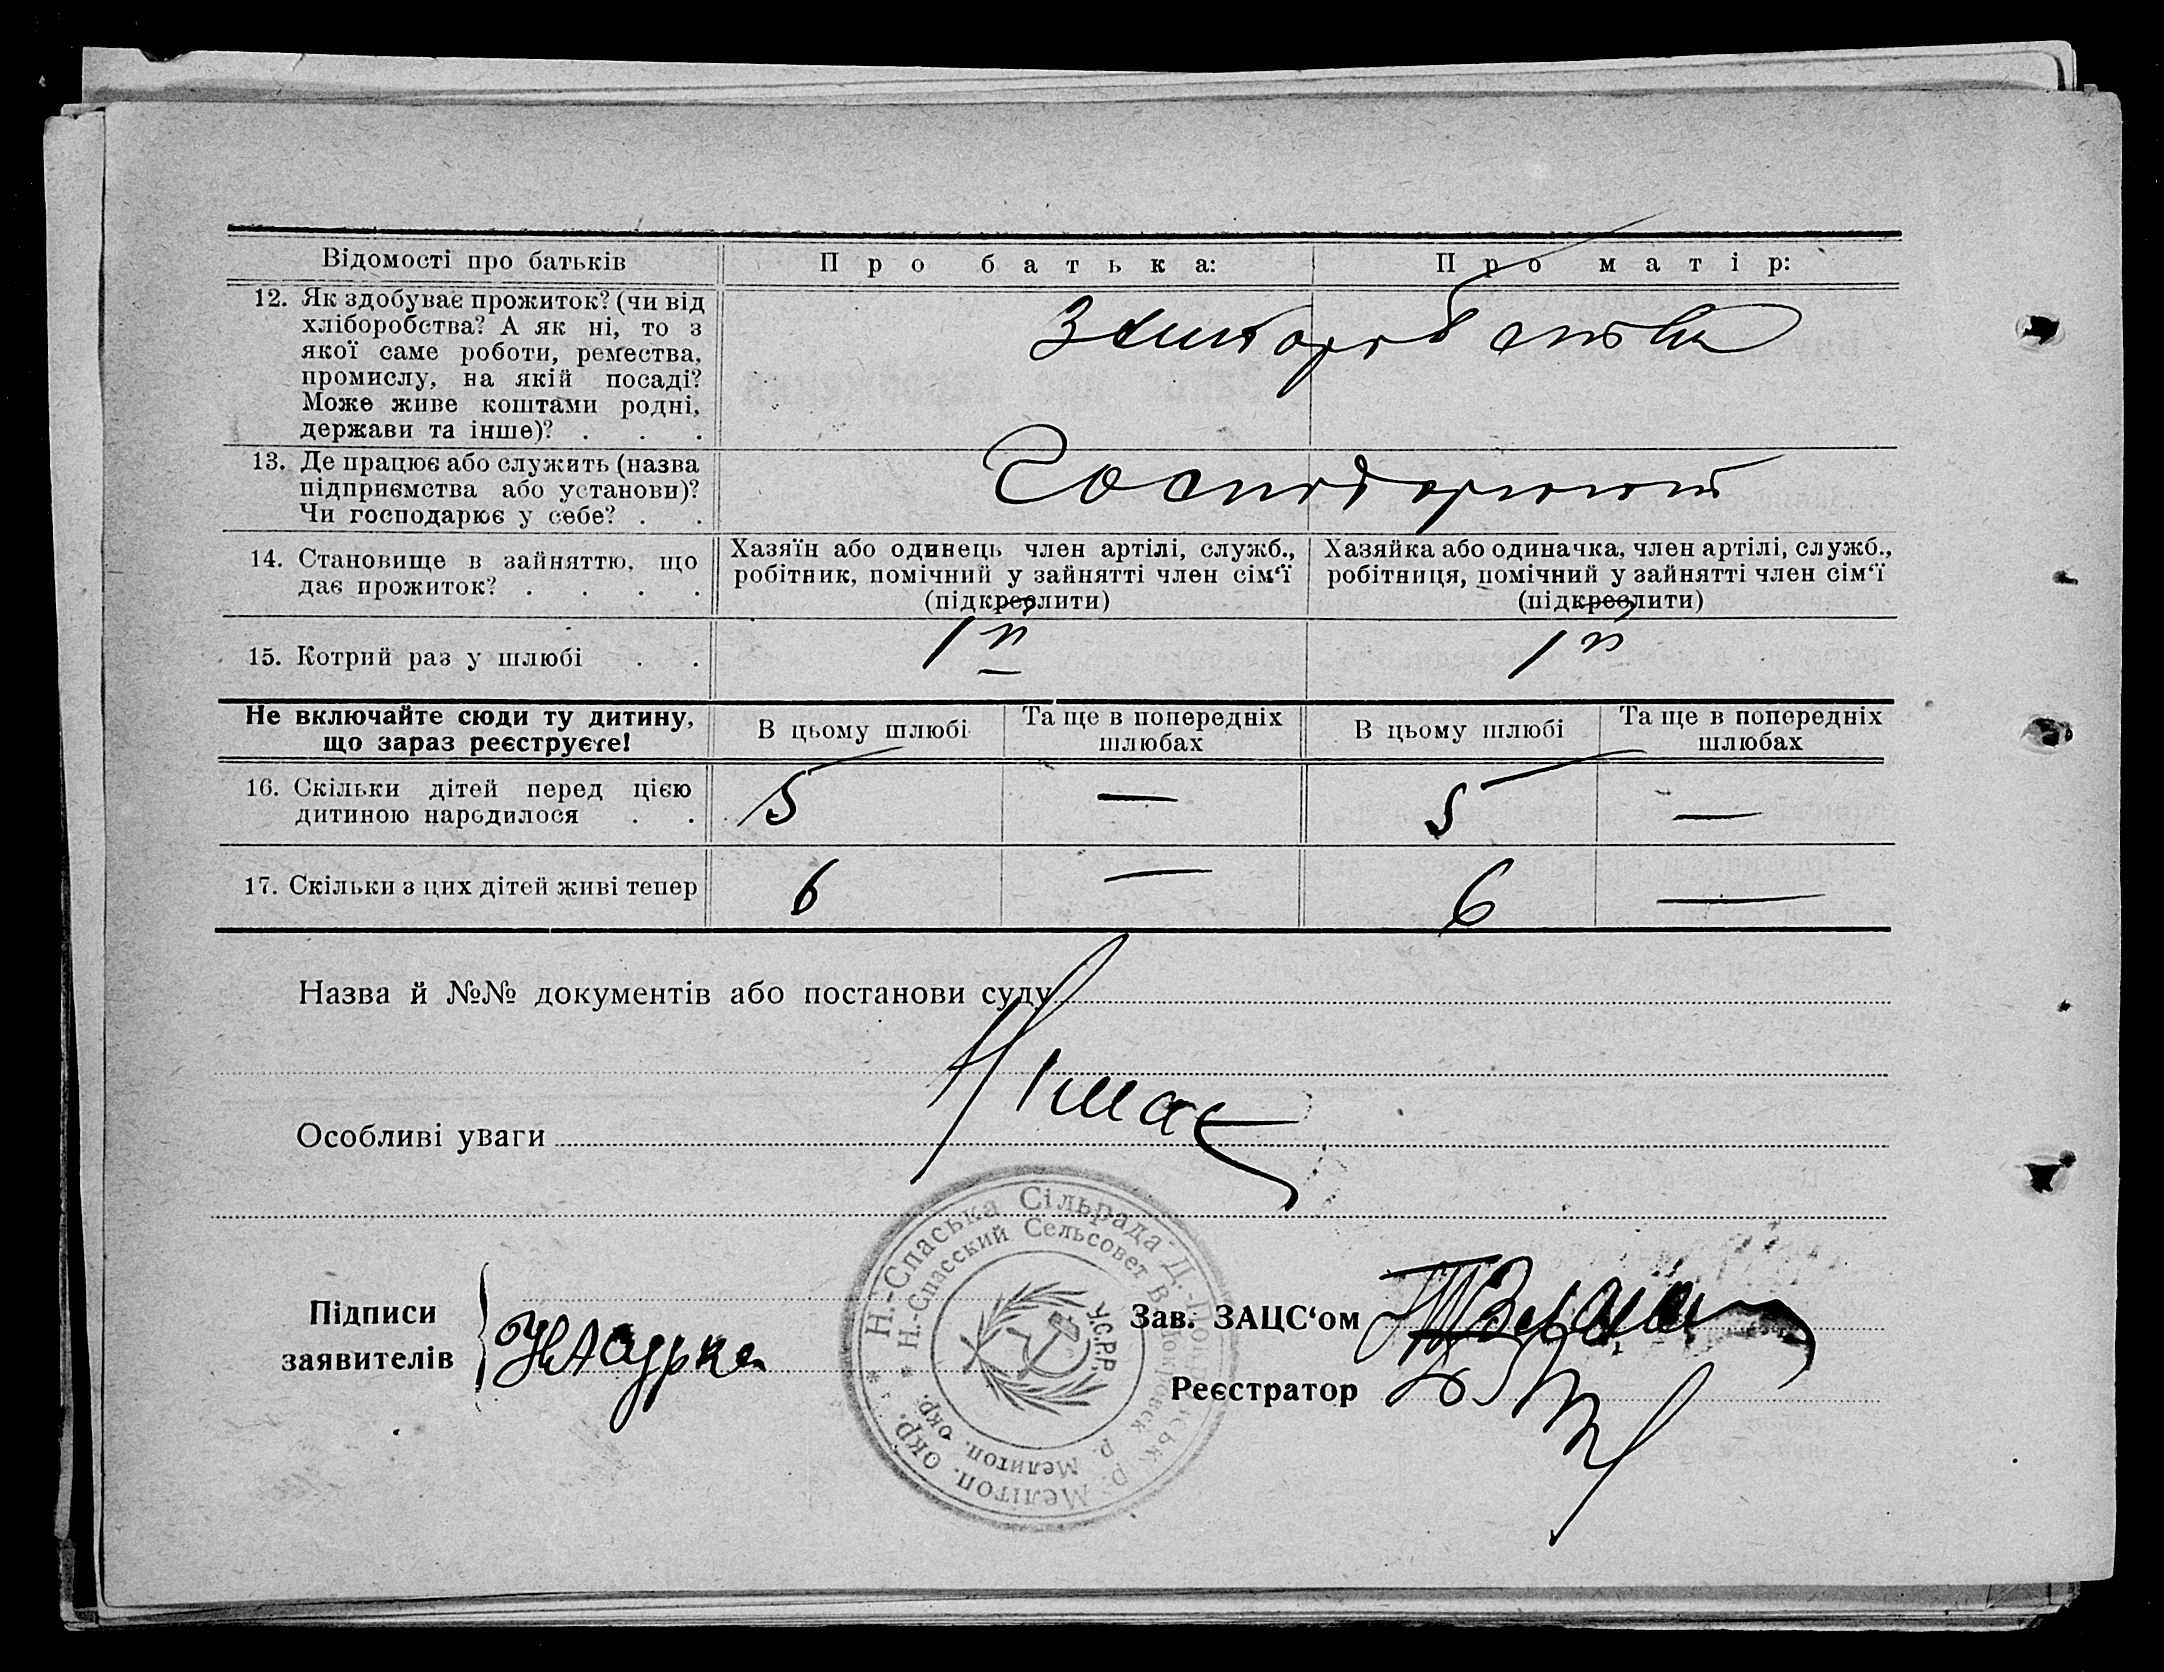 Відомості про батьків
Про батька:
Про матір:
12. Як здобуває прожиток? (чи від
хліборобства? А як ні, то з
якої саме роботи, ремества,
промислу, на якій посаді?
Може живе коштами родні,
держави та інше)? . . .
13. Де працює або служить (назва
підприємства або установи)?
Чи господарює у себе? . .
14. Становище в зайняттю, що
дає прожиток? . . . .
Хазяїн або одинець член артілі, служб.,
робітник, помічний у зайнятті член сім‘ї
(підкреслити)
Хазяйка або одиначка, член артілі, служб.,
робітниця, помічний у зайнятті член сім‘ї
(підкреслити)
15. Котрий раз у шлюбі . .
1й
1й
Не включайте сюди ту дитину,
що зараз реєструєте!
В цьому шлюбі
Та ще в попередніх
шлюбах
В цьому шлюбі
Та ще в попередніх
шлюбах
16. Скільки дітей перед цією
дитиною народилося . .
5
—
5
—
17. Скільки з цих дітей живі тепер
6
—
6
—
Назва й №№ документів або постанови суду
Німає
Особливі уваги
Підписи
заявителів
Зав. ЗАЦС‘ом
Реєстратор
Н.-Спаська Сільрада Д.-Покровськ р. Мелітоп. окр.
Н.-Спасский Сельсовет В. Покровск р. Мелитоп. окр.
У.С.Р.Р.